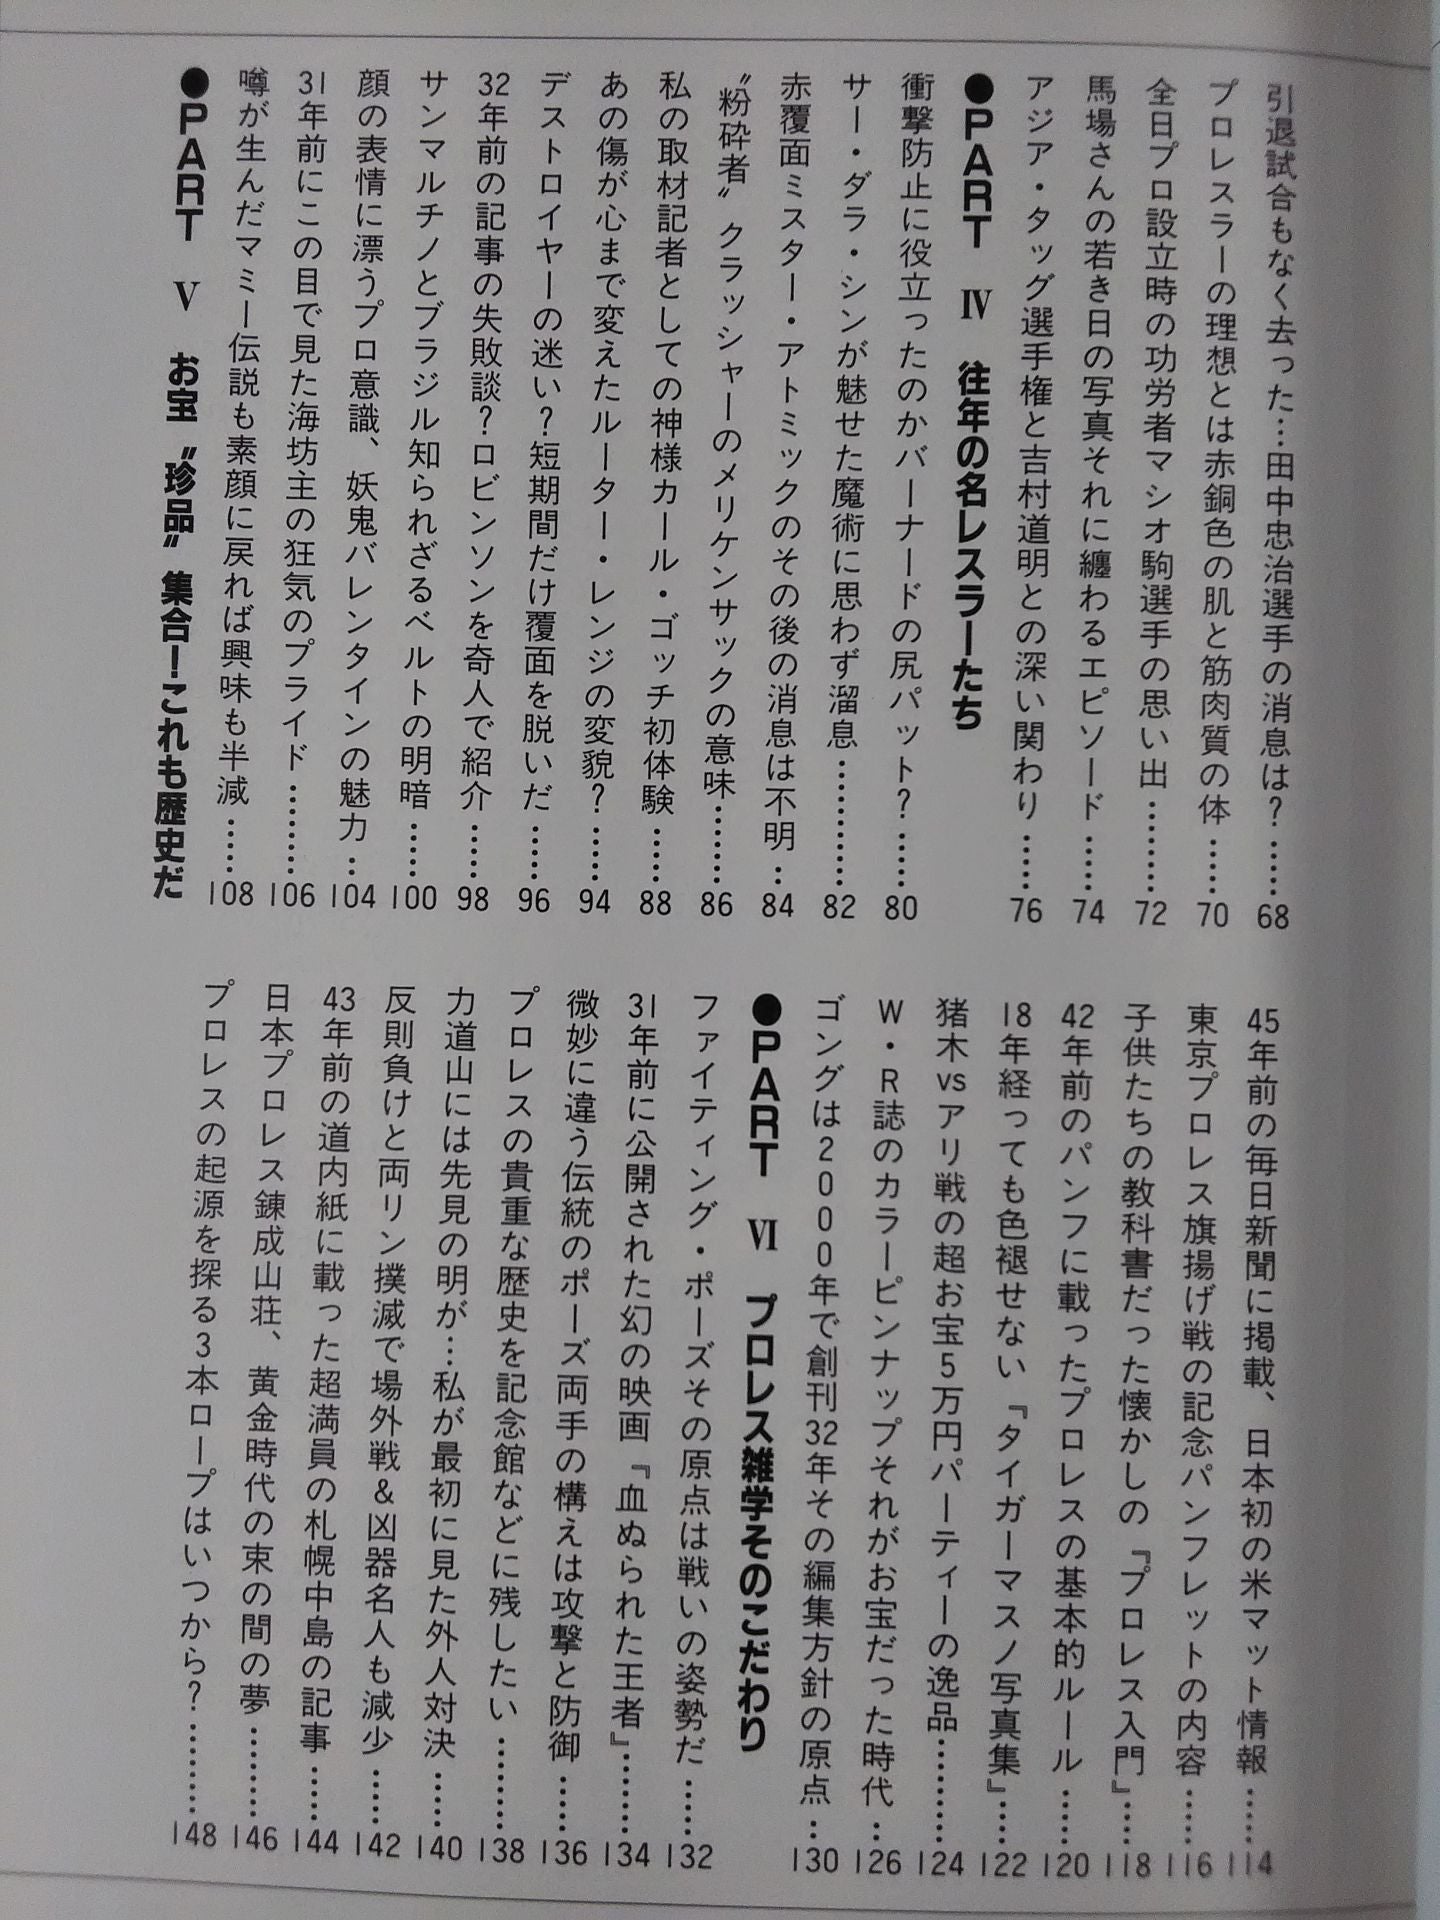 引退試合もなく去った…田中忠治選手の消息は？……68
プロレスラーの理想とは赤銅色の肌と筋肉質の体……70
全日プロ設立時の功労者マシオ駒選手の思い出………72
馬場さんの若き日の写真それに纏わるエピソード……74
アジア・タッグ選手権と吉村道明との深い関わり……76
●PART Ⅳ 往年の名レスラーたち
衝撃防止に役立ったのかバーナードの尻パット？……80
サー・ダラ・シンが魅せた魔術に思わず溜息…………82
赤覆面ミスター・アトミックのその後の消息は不明…84
〝粉砕者〟クラッシャーのメリケンサックの意味………86
私の取材記者としての神様カール・ゴッチ初体験……88
あの傷が心まで変えたルーター・レンジの変貌？……94
デストロイヤーの迷い？短期間だけ覆面を脱いだ……96
32年前の記事の失敗談？ロビンソンを奇人で紹介……98
サンマルチノとブラジル知られざるベルトの明暗……100
顔の表情に漂うプロ意識、妖鬼バレンタインの魅力…104
31年前にこの目で見た海坊主の狂気のプライド………106
噂が生んだマミー伝説も素顔に戻れば興味も半減……108
●PART Ⅴ お宝〝珍品〟集合！これも歴史だ
45年前の毎日新聞に掲載、日本初の米マット情報……114
東京プロレス旗揚げ戦の記念パンフレットの内容……116
子供たちの教科書だった懐かしの『プロレス入門』……118
42年前のパンフに載ったプロレスの基本的ルール……120
18年経っても色褪せない『タイガーマスノ写真集』……122
猪木vsアリ戦の超お宝5万円パーティーの逸品………124
W・R誌のカラーピンナップそれがお宝だった時代…126
ゴングは2000年で創刊32年その編集方針の原点…130
●PART Ⅵ プロレス雑学そのこだわり
ファイティング・ポーズその原点は戦いの姿勢だ……132
31年前に公開された幻の映画『血ぬられた王者』………134
微妙に違う伝統のポーズ両手の構えは攻撃と防御……136
プロレスの貴重な歴史を記念館などに残したい………138
力道山には先見の明が…私が最初に見た外人対決……140
反則負けと両リン撲滅で場外戦＆凶器名人も減少……142
43年前の道内紙に載った超満員の札幌中島の記事……144
日本プロレス錬成山荘、黄金時代の束の間の夢………146
プロレスの起源を探る3本ロープはいつから？………148